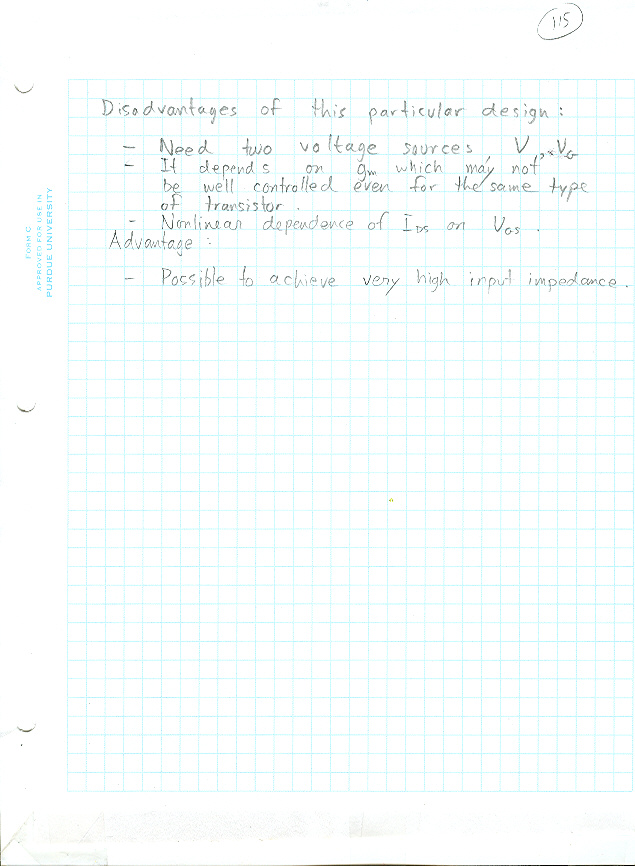 115
Disadvantages of this particular design:
- Need two voltage sources, V
- It depends on gm which may not
be well controlled even for the same type
of transistor.
- Nonlinear dependence of IDS on VGS.
Advantage:
- Possible to achieve very high input impedance.
FORM C
APPROVED FOR USE IN
PURDUE UNIVERSITY